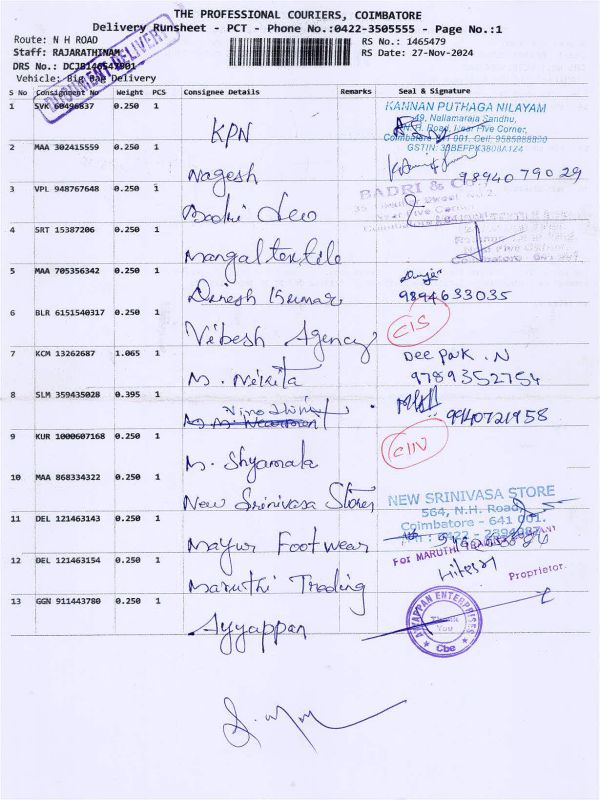 THE PROFESSIONAL COURIERS, COIMBATORE
Delivery Runsheet - PCT - Phone No.:0422-3505555 - Page No.:1
Route: N H ROAD
RS No.: 1465479
Staff: RAJARATHINAM
RS Date: 27-Nov-2024
DRS No.:
Vehicle: Big Bag Delivery
DOCUMENT DELIVERY
S No Consignment No Weight PCS Consignee Details Remarks Seal & Signature
1 SVK 60496837 0.250 1 KPN
KANNAN PUTHAGA NILAYAM
49, Nallamaraia Sandhu,
N.H. Road, Near Five Corner,
Coimbatore
2 MAA 302415559 0.250 1 Nagesh
98940 79029
3 VPL 948767648 0.250 1 Badri Leo
BADRI & Co.
4 SRT 15387206 0.250 1 Mangal textile
5 MAA 705356342 0.250 1 Dinesh Kumar
9894633035
6 BLR 6151540317 0.250 1 Vibesh Agency
C15
7 KCM 13262687 1.065 1 M. Nikita
Deepak . N
9789352754
8 SLM 359435028 0.395 1
9940721958
9 KUR 1000607168 0.250 1 M. Shyamala
10 MAA 868334322 0.250 1 New Srinivasa Stores
NEW SRINIVASA STORE
564, N.H. Road,
Coimbatore - 641 001.
11 DEL 121463143 0.250 1 Mayur Footwear
12 DEL 121463154 0.250 1 Maruthi Trading
For MARUTHI
Hitesh
Proprietor.
13 GGN 911443780 0.250 1 Ayyappan
AYYAPPAN ENTERPRISES
Thank
You
Cbe